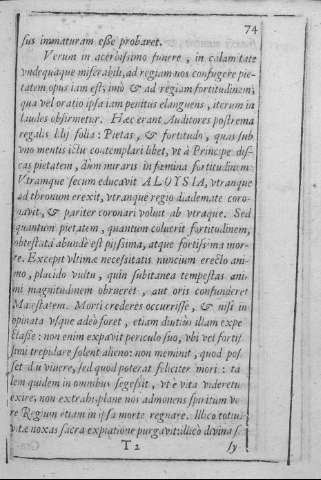 74
sus immaturam esse probaret.
Verum in acerbissimo funere, in calamitate
undequaque miserabili, ad regiam nos confugere pie-
tatem opus iam est; imò & ad regiam fortitudinem;
qua vel oratio ipsa iam penitus elanguens, iterum in
laudes obfirmetur. Hæc erant Auditores postrema
regalis lilij folia: Pietas, & fortitudo, quas sub
uno mentis ictu contemplari libet, ut à Principe dis-
cas pietatem, dum miraris in fœmina fortitudinem.
Vtramque secum educavit ALOYSIA, utranque
ad thronum erexit, utranque regio diademate coro-
navit, & pariter coronari voluit ab utraque. Sed
quantum pietatem, quantum coluerit fortitudinem,
obtestata abundè est pijssima, atque fortissima mor-
te. Excepit ultimæ necessitatis nuncium erecto ani-
mo, placido vultu, quin subitanea tempestas ani-
mi magnitudinem obrueret, aut oris confunderet
Maiestatem. Morti crederes occurrisse, & nisi in
opinata usque adeò foret, etiam diutius illam expe
ctasse: non enim expavit periculo suo, ubi vel fortis
simi trepidare solent alieno: non meminit, quod pos
set diu vivere, sed quod poterat feliciter mori: ta
lem quidem in omnibus se gessit, ut è vita videretur
exire, non extrahi: plane nos admonens spiritum ve
re Regium etiam in ipsa morte regnare. Illico totius
vitæ noxas sacra expiatione purgavit: illicò divinas.
T 2 sy